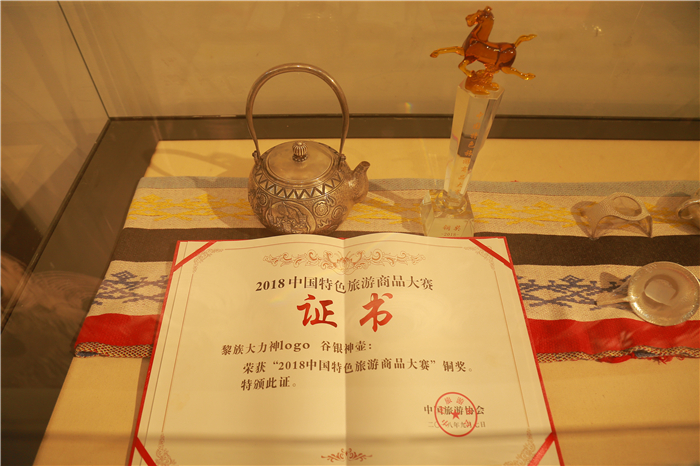 2018中国特色旅游商品大赛
证书
黎族大力神logo 谷银神壶：
荣获“2018中国特色旅游商品大赛”铜奖。
特颁此证。
中国旅游协会
铜奖